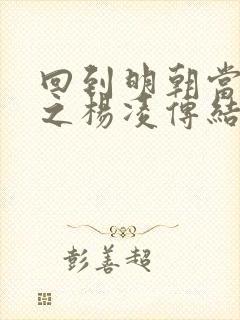 回到明朝當
之楊凌傳結
彭善超